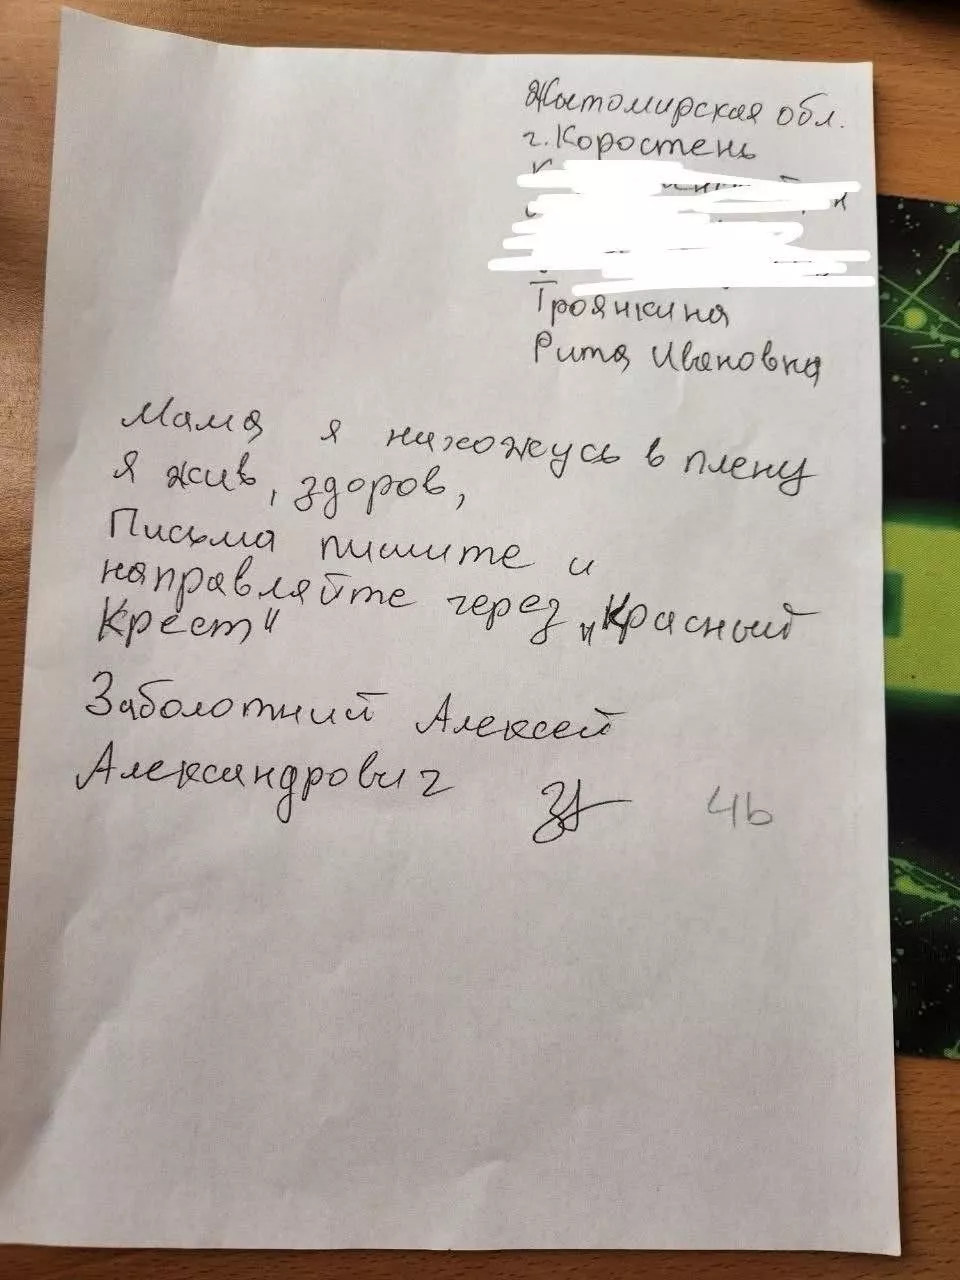 Житомирская обл.
г. Коростень
Троянкина
Рита Ивановна
Мама я нахожусь в плену
я жив, здоров,
Письма пишите и
направляйте через „Красный
Крест"
Заболотний Алексей
Александрович
4b